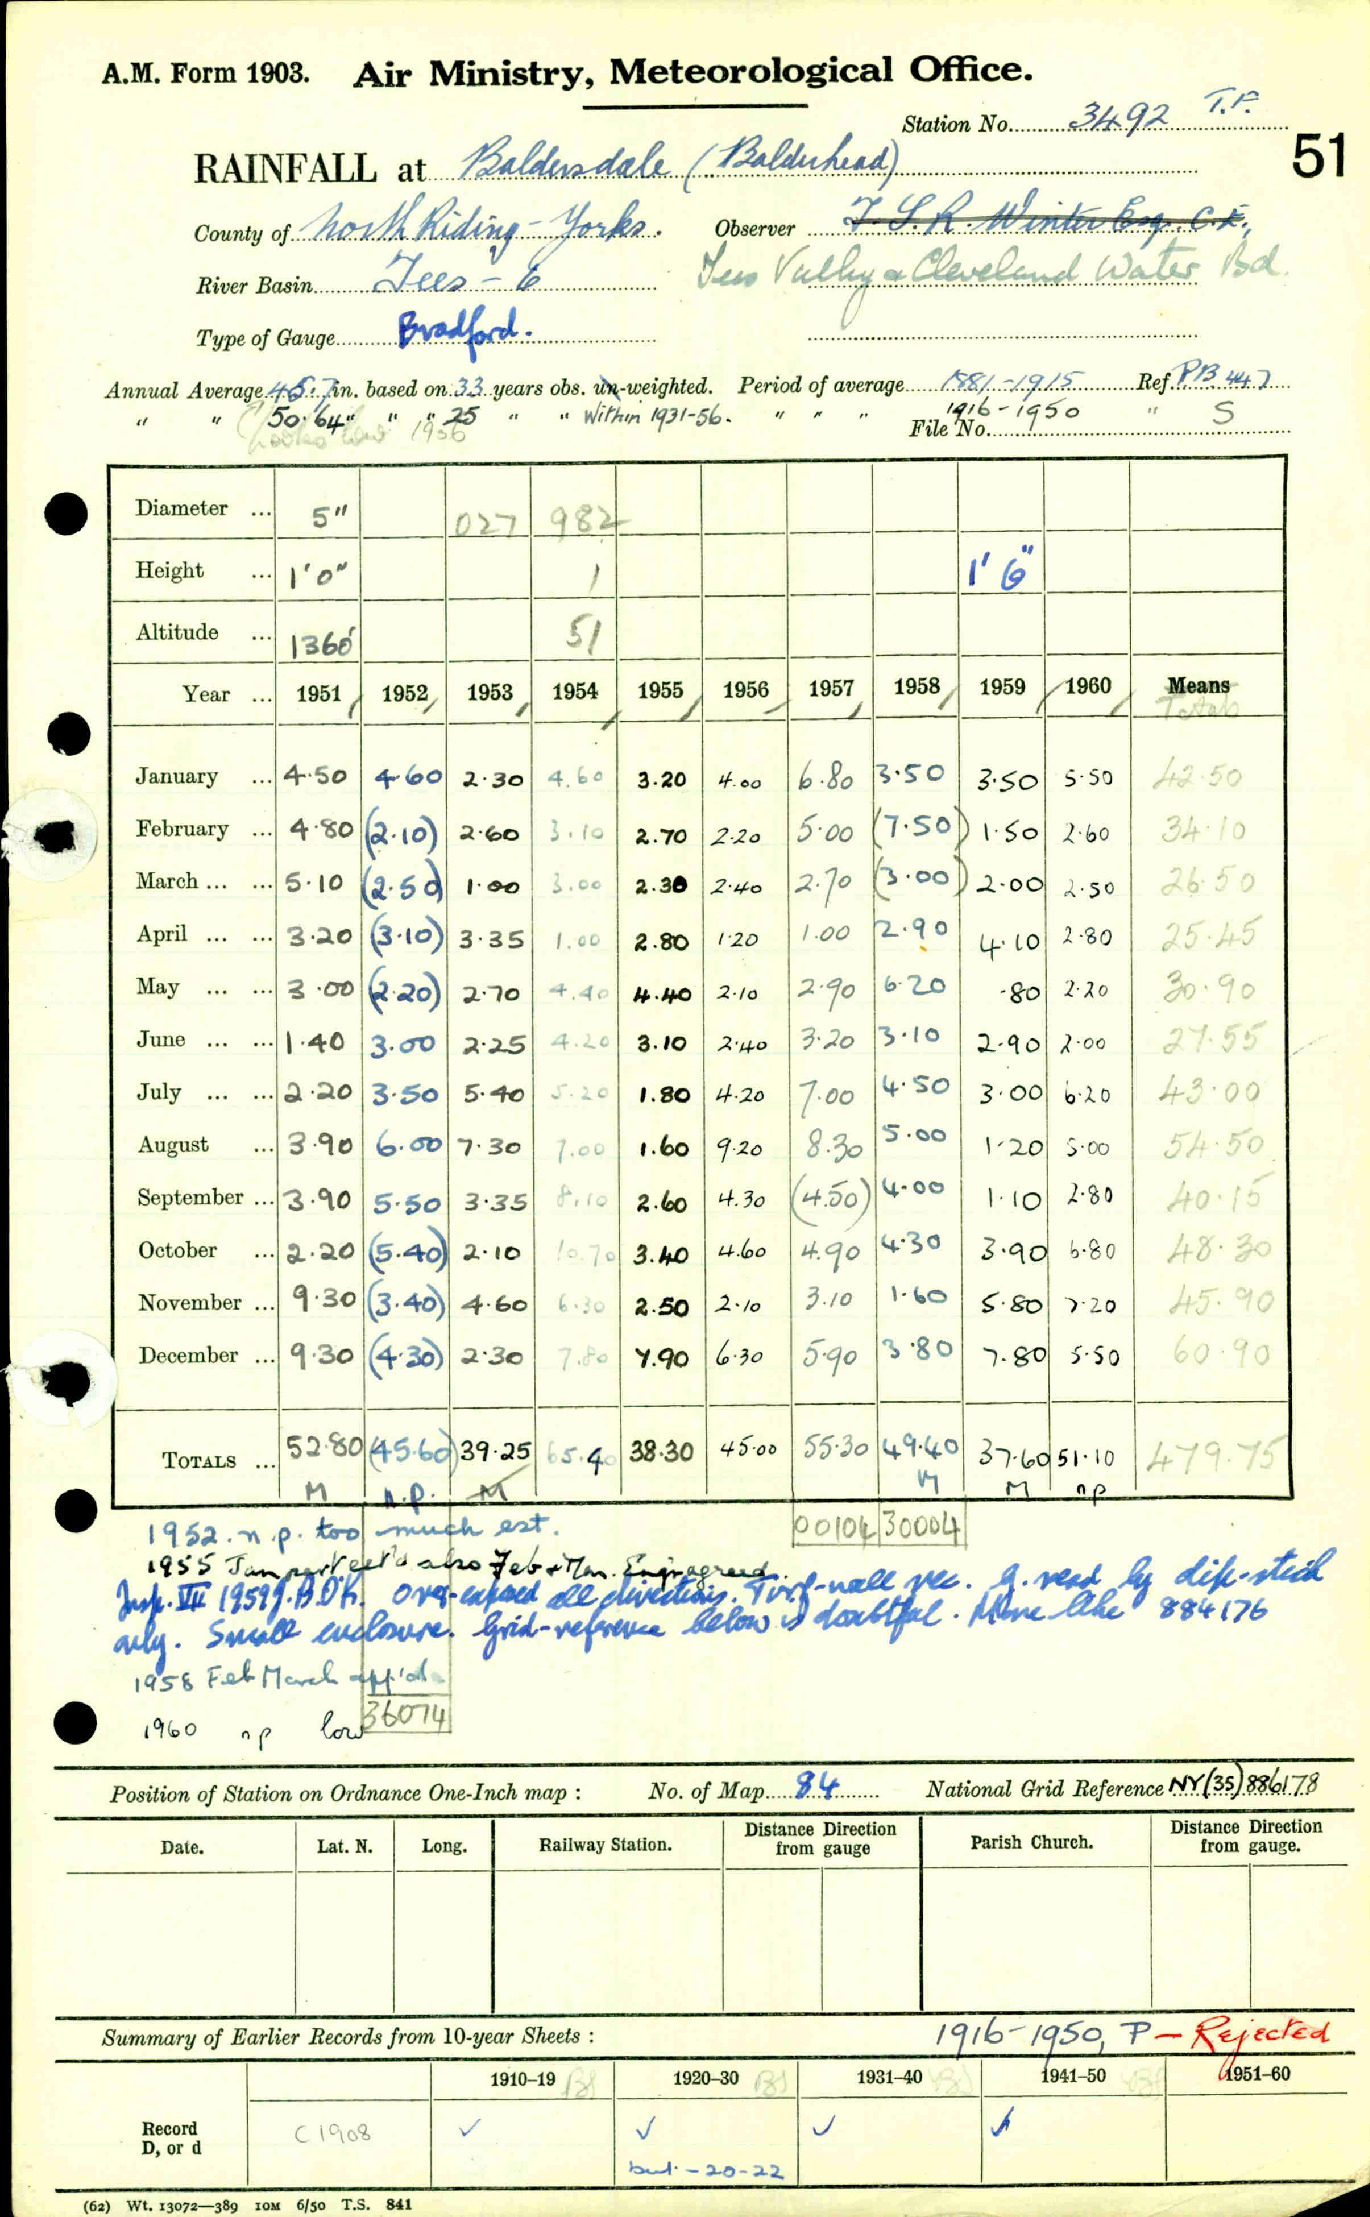 A.M. Form 1903. Air Ministry, Meteorological Office.
Station No. 3492 T.F.
51
RAINFALL at Baldersdale (Balderhead)
County of North Riding - Yorks. Observer F. S. R. Winter Esq. C.E.,
River Basin Tees - 6 Tees Valley & Cleveland Water Bd.
Type of Gauge Bradford.
Annual Average 45.7 in. based on 33 years obs. un-weighted. Period of average 1881-1915 Ref. PB 447
" " 50.64" " " 25 " " Within 1931-56. " " " 1916-1950 " S
looks low 1956 File No.
Diameter ... 5" 027 982
Height ... 1'0" 1 1' 6"
Altitude ... 1360' 51
Year ... 1951 1952 1953 1954 1955 1956 1957 1958 1959 1960 Means
Totals
January ... 4.50 4.60 2.30 4.60 3.20 4.00 6.80 3.50 3.50 5.50 42.50
February ... 4.80 (2.10) 2.60 3.10 2.70 2.20 5.00 (7.50) 1.50 2.60 34.10
March ... ... 5.10 (2.50) 1.00 3.00 2.30 2.40 2.70 (3.00) 2.00 2.50 26.50
April ... ... 3.20 (3.10) 3.35 1.00 2.80 1.20 1.00 2.90 4.10 2.80 25.45
May ... ... 3.00 (2.20) 2.70 4.40 4.40 2.10 2.90 6.20 .80 2.20 30.90
June ... ... 1.40 3.00 2.25 4.20 3.10 2.40 3.20 3.10 2.90 2.00 27.55
July ... ... 2.20 3.50 5.40 5.20 1.80 4.20 7.00 4.50 3.00 6.20 43.00
August ... 3.90 6.00 7.30 7.00 1.60 9.20 8.30 5.00 1.20 5.00 54.50
September ... 3.90 5.50 3.35 8.10 2.60 4.30 (4.50) 4.00 1.10 2.80 40.15
October ... 2.20 (5.40) 2.10 10.70 3.40 4.60 4.90 4.30 3.90 6.80 48.30
November ... 9.30 (3.40) 4.60 6.30 2.50 2.10 3.10 1.60 5.80 7.20 45.90
December ... 9.30 (4.30) 2.30 7.80 7.90 6.30 5.90 3.80 7.80 5.50 60.90
TOTALS ... 52.80 (45.60) 39.25 65.40 38.30 45.00 55.30 49.40 37.60 51.10 479.75
M n.p. M M M np
00104 30004
1952. n.p. too much est.
1955 Jan part est'd also Feb & Mar. Eng. agreed.
Insp. VII 1959 J.B.D.K. Over-exposed all directions. Turf-wall rec. G. read by dip-stick
only. Small enclosure. Grid-reference below is doubtful. More like 884176
1958 Feb March app'd.
1960 np low
36074
Position of Station on Ordnance One-Inch map : No. of Map 84 National Grid Reference NY (35) 886178
Date. Lat. N. Long. Railway Station. Distance Direction from gauge Parish Church. Distance Direction from gauge.
Summary of Earlier Records from 10-year Sheets : 1916-1950, P - Rejected
1910–19 BS 1920–30 BS 1931–40 BS 1941–50 BS 1951–60
Record
D, or d C 1908 ✓ ✓ ✓ ✓
but - 20-22
(62) Wt. 13072—389 10M 6/50 T.S. 841